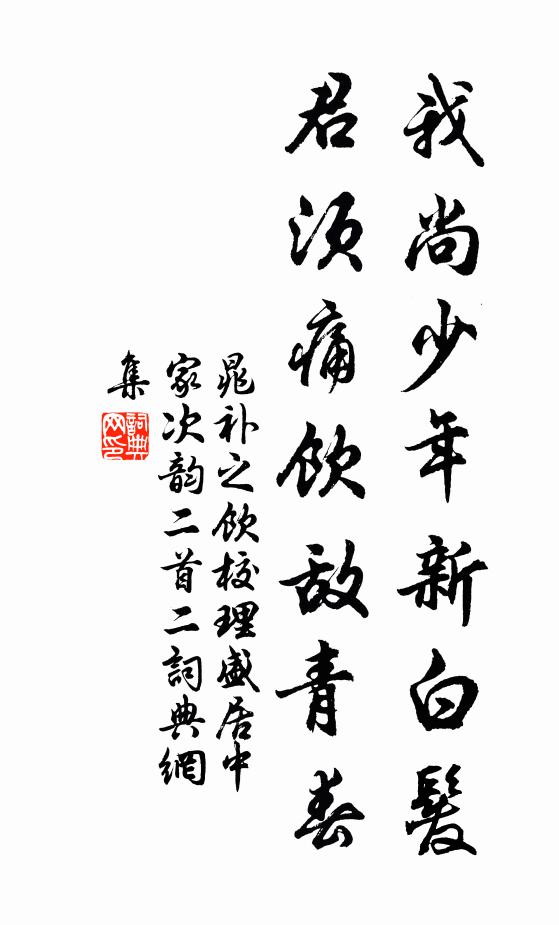 我尚少年新白髮
君須痛飲敵青春
晁補之飲校理盛居中
家次韵二首二詞典網
集
詞典網印